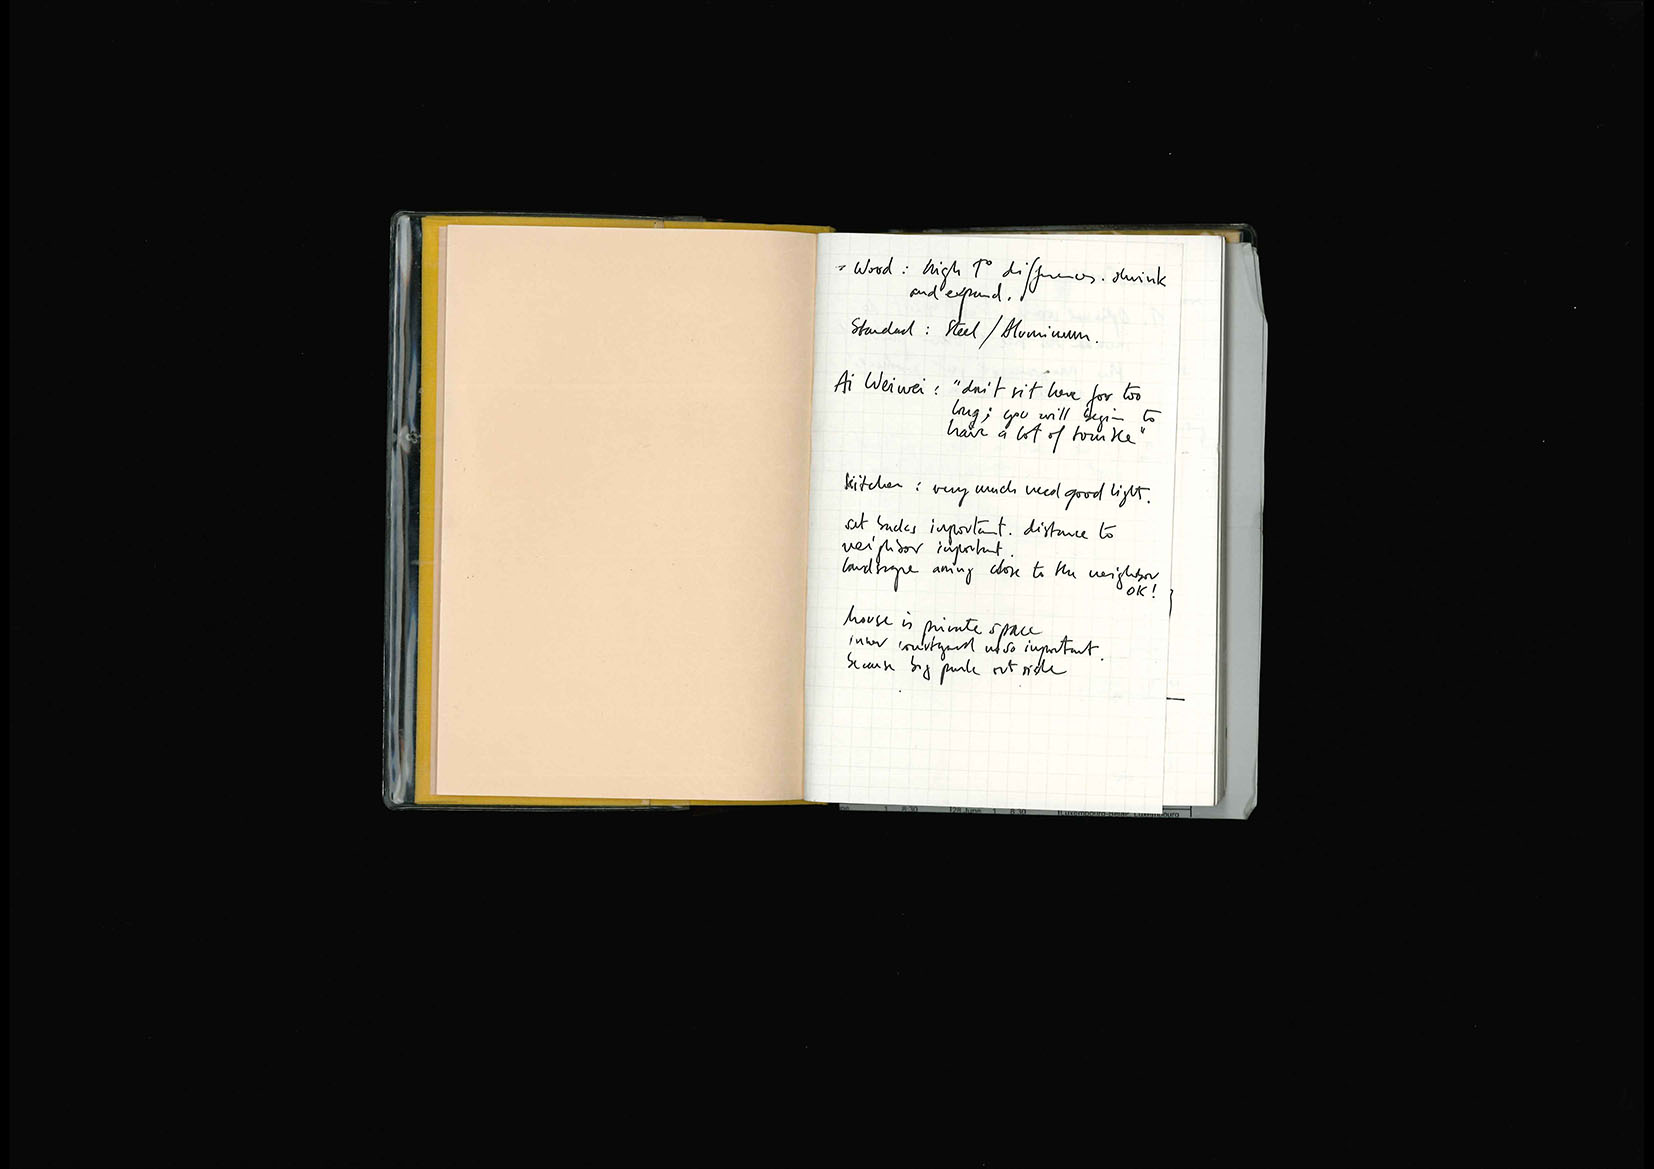 - Wood : high T° differences. shrink
and expand.
Standard : Steel / Aluminum.
Ai Weiwei : "don't sit here for too
long; you will begin to
have a lot of trouble"
kitchen : very much need good light.
set backs important. distance to
neighbor important.
landscape coming close to the neighbor
OK!
house is private space
inner courtyard also important.
because big park outside
8:30 28 June 1 8:30 Luxembourg